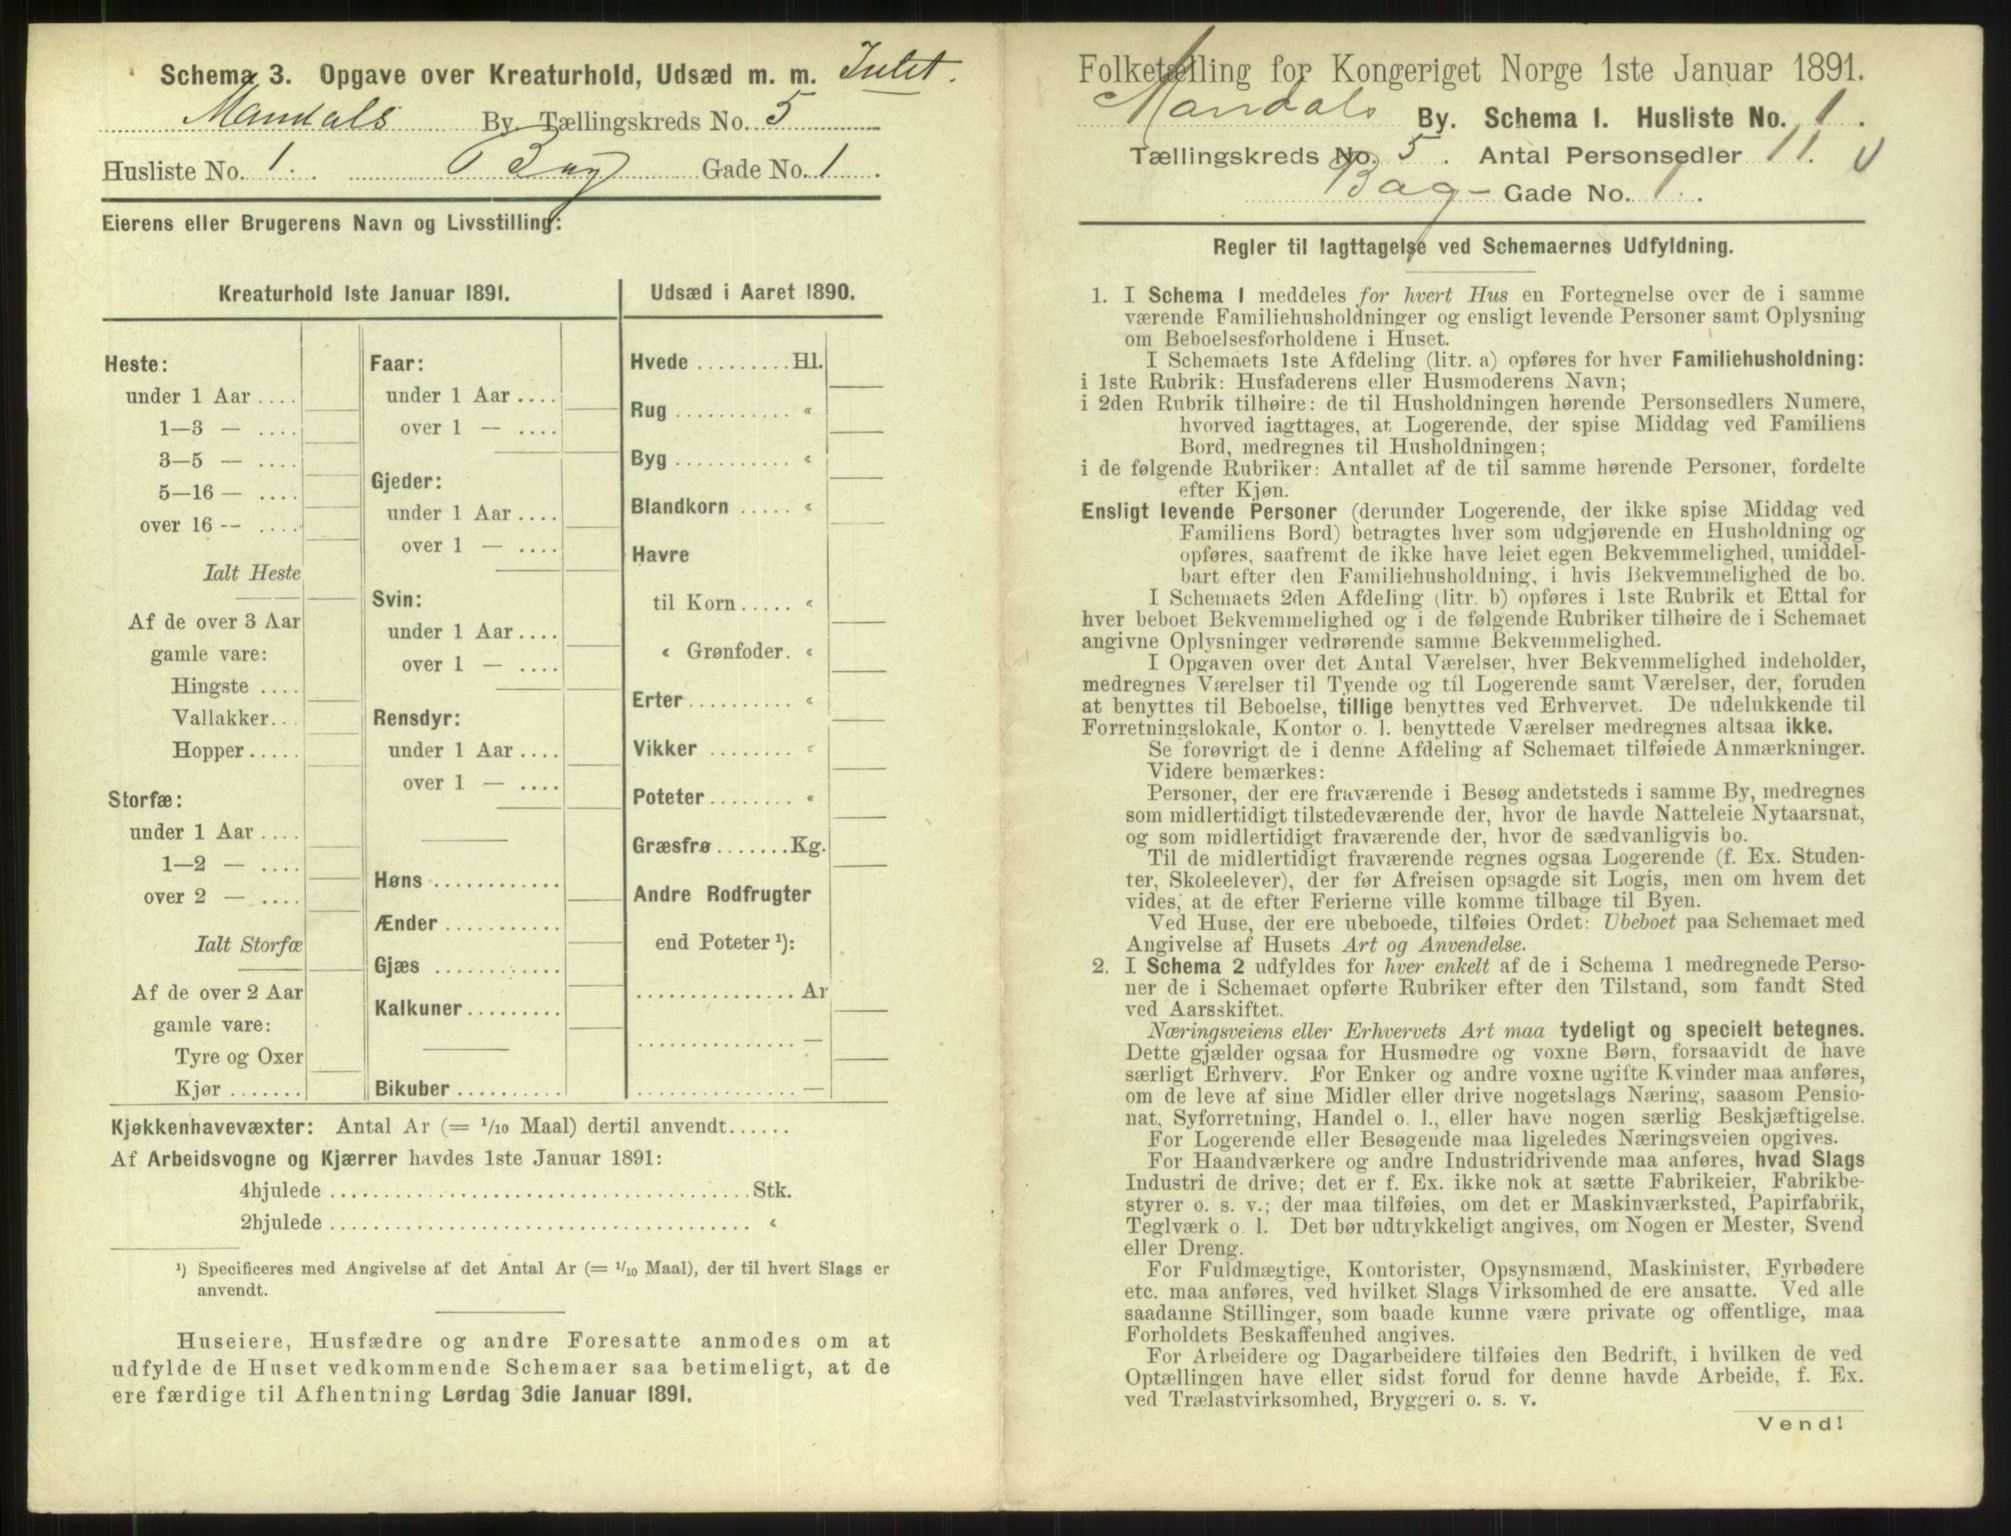 Schema 3. Opgave over Kreaturhold, Udsæd m. m. Intet.
Mandals By. Tællingskreds No. 5
Husliste No. 1. Bag Gade No. 1.
Eierens eller Brugerens Navn og Livsstilling:
Kreaturhold 1ste Januar 1891.
Heste:
under 1 Aar ....
1—3 — ....
3—5 — ....
5—16 — ....
over 16 -- ....
Ialt Heste
Af de over 3 Aar
gamle vare:
Hingste ....
Vallakker...
Hopper.....
Storfæ:
under 1 Aar ....
1—2 — ....
over 2 — ....
Ialt Storfæ
Af de over 2 Aar
gamle vare:
Tyre og Oxer
Kjør .......
Faar:
under 1 Aar ....
over 1 — ....
Gjeder:
under 1 Aar ....
over 1 — ....
Svin:
under 1 Aar ....
over 1 — ....
Rensdyr:
under 1 Aar ....
over 1 — ....
Høns ............
Ænder ...........
Gjæs ............
Kalkuner.........
Bikuber..........
Udsæd i Aaret 1890.
Hvede .........Hl.
Rug ........... «
Byg ........... «
Blandkorn ..... «
Havre
til Korn..... «
« Grønfoder. «
Erter.......... «
Vikker ........ «
Poteter........ «
Græsfrø.......Kg.
Andre Rodfrugter
end Poteter ¹):
............... Ar
............... —
............... —
Kjøkkenhavevæxter: Antal Ar (= 1/10 Maal) dertil anvendt......
Af Arbeidsvogne og Kjærrer havdes 1ste Januar 1891:
4hjulede ........................................Stk.
2hjulede ........................................ «
¹) Specificeres med Angivelse af det Antal Ar (= 1/10 Maal), der til hvert Slags er
anvendt.
Huseiere, Husfædre og andre Foresatte anmodes om at
udfylde de Huset vedkommende Schemaer saa betimeligt, at de
ere færdige til Afhentning Lørdag 3die Januar 1891.
Folketælling for Kongeriget Norge 1ste Januar 1891.
Mandals By. Schema I. Husliste No. 1.
Tællingskreds No. 5. Antal Personsedler 11.
Bag- Gade No. 1.
Regler til Iagttagelse ved Schemaernes Udfyldning.
1. I Schema 1 meddeles for hvert Hus en Fortegnelse over de i samme
værende Familiehusholdninger og ensligt levende Personer samt Oplysning
om Beboelsesforholdene i Huset.
I Schemaets 1ste Afdeling (litr. a) opføres for hver Familiehusholdning:
i 1ste Rubrik: Husfaderens eller Husmoderens Navn;
i 2den Rubrik tilhøire: de til Husholdningen hørende Personsedlers Numere,
hvorved iagttages, at Logerende, der spise Middag ved Familiens
Bord, medregnes til Husholdningen;
i de følgende Rubriker: Antallet af de til samme hørende Personer, fordelte
efter Kjøn.
Ensligt levende Personer (derunder Logerende, der ikke spise Middag ved
Familiens Bord) betragtes hver som udgjørende en Husholdning og
opføres, saafremt de ikke have leiet egen Bekvemmelighed, umiddel-
bart efter den Familiehusholdning, i hvis Bekvemmelighed de bo.
I Schemaets 2den Afdeling (litr. b) opføres i 1ste Rubrik et Ettal for
hver beboet Bekvemmelighed og i de følgende Rubriker tilhøire de i Schemaet
angivne Oplysninger vedrørende samme Bekvemmelighed.
I Opgaven over det Antal Værelser, hver Bekvemmelighed indeholder,
medregnes Værelser til Tyende og til Logerende samt Værelser, der, foruden
at benyttes til Beboelse, tillige benyttes ved Erhvervet. De udelukkende til
Forretningslokale, Kontor o. l. benyttede Værelser medregnes altsaa ikke.
Se forøvrigt de i denne Afdeling af Schemaet tilføiede Anmærkninger.
Videre bemærkes:
Personer, der ere fraværende i Besøg andetsteds i samme By, medregnes
som midlertidigt tilstedeværende der, hvor de havde Natteleie Nytaarsnat,
og som midlertidigt fraværende der, hvor de sædvanligvis bo.
Til de midlertidigt fraværende regnes ogsaa Logerende (f. Ex. Studen-
ter, Skoleelever), der før Afreisen opsagde sit Logis, men om hvem det
vides, at de efter Ferierne ville komme tilbage til Byen.
Ved Huse, der ere ubeboede, tilføies Ordet: Ubeboet paa Schemaet med
Angivelse af Husets Art og Anvendelse.
2. I Schema 2 udfyldes for hver enkelt af de i Schema 1 medregnede Perso-
ner de i Schemaet opførte Rubriker efter den Tilstand, som fandt Sted
ved Aarsskiftet.
Næringsveiens eller Erhvervets Art maa tydeligt og specielt betegnes.
Dette gjælder ogsaa for Husmødre og voxne Børn, forsaavidt de have
særligt Erhverv. For Enker og andre voxne ugifte Kvinder maa anføres,
om de leve af sine Midler eller drive nogetslags Næring, saasom Pensio-
nat, Syforretning, Handel o. l., eller have nogen særlig Beskjæftigelse.
For Logerende eller Besøgende maa ligeledes Næringsveien opgives.
For Haandværkere og andre Industridrivende maa anføres, hvad Slags
Industri de drive; det er f. Ex. ikke nok at sætte Fabrikeier, Fabrikbe-
styrer o. s. v.; der maa tilføies, om det er Maskinværksted, Papirfabrik,
Teglværk o. l. Det bør udtrykkeligt angives, om Nogen er Mester, Svend
eller Dreng.
For Fuldmægtige, Kontorister, Opsynsmænd, Maskinister, Fyrbødere
etc. maa anføres, ved hvilket Slags Virksomhed de ere ansatte. Ved alle
saadanne Stillinger, som baade kunne være private og offentlige, maa
Forholdets Beskaffenhed angives.
For Arbeidere og Dagarbeidere tilføies den Bedrift, i hvilken de ved
Optællingen have eller sidst forud for denne havde Arbeide, f. Ex.
ved Trælastvirksomhed, Bryggeri o. s. v.
Vend!